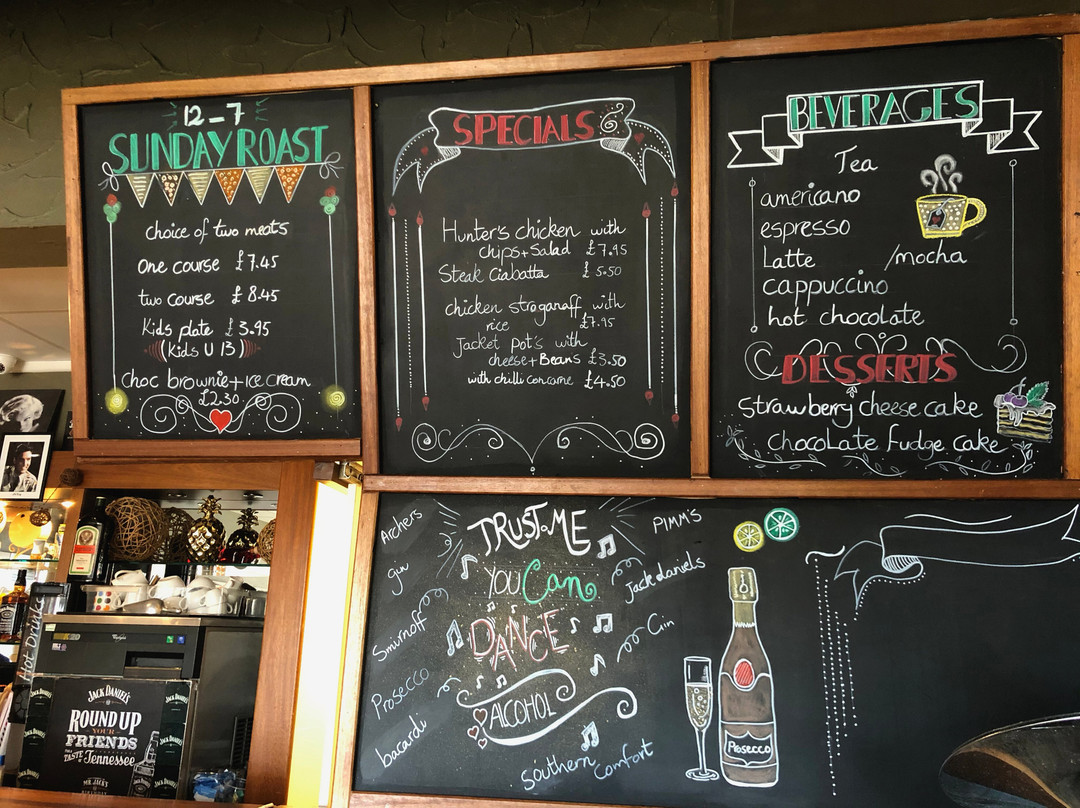 12-7
SUNDAY ROAST
choice of two meats
One course £7.45
two course £8.45
Kids plate £3.95
(Kids U 13)
Choc brownie + Ice cream
£2.30
SPECIALS
Hunter's chicken with
chips + Salad £7.95
Steak Ciabatta £5.50
chicken stroganoff with
rice £7.95
Jacket pot's with
cheese + Beans £3.50
with chilli concarne £4.50
BEVERAGES
Tea
americano
espresso
Latte /mocha
cappuccino
hot chocolate
DESSERTS
Strawberry cheese cake
chocolate fudge cake
TRUST ME
YOU Can
DANCE
ALCOHOL
Archers
gin
Smirnoff
Prosecco
bacardi
PIMM'S
Jack daniels
Gin
Southern Comfort
PROSECCO
Hot Drinks
JACK DANIEL'S
ROUND UP
YOUR
FRIENDS
TASTE OF Tennessee